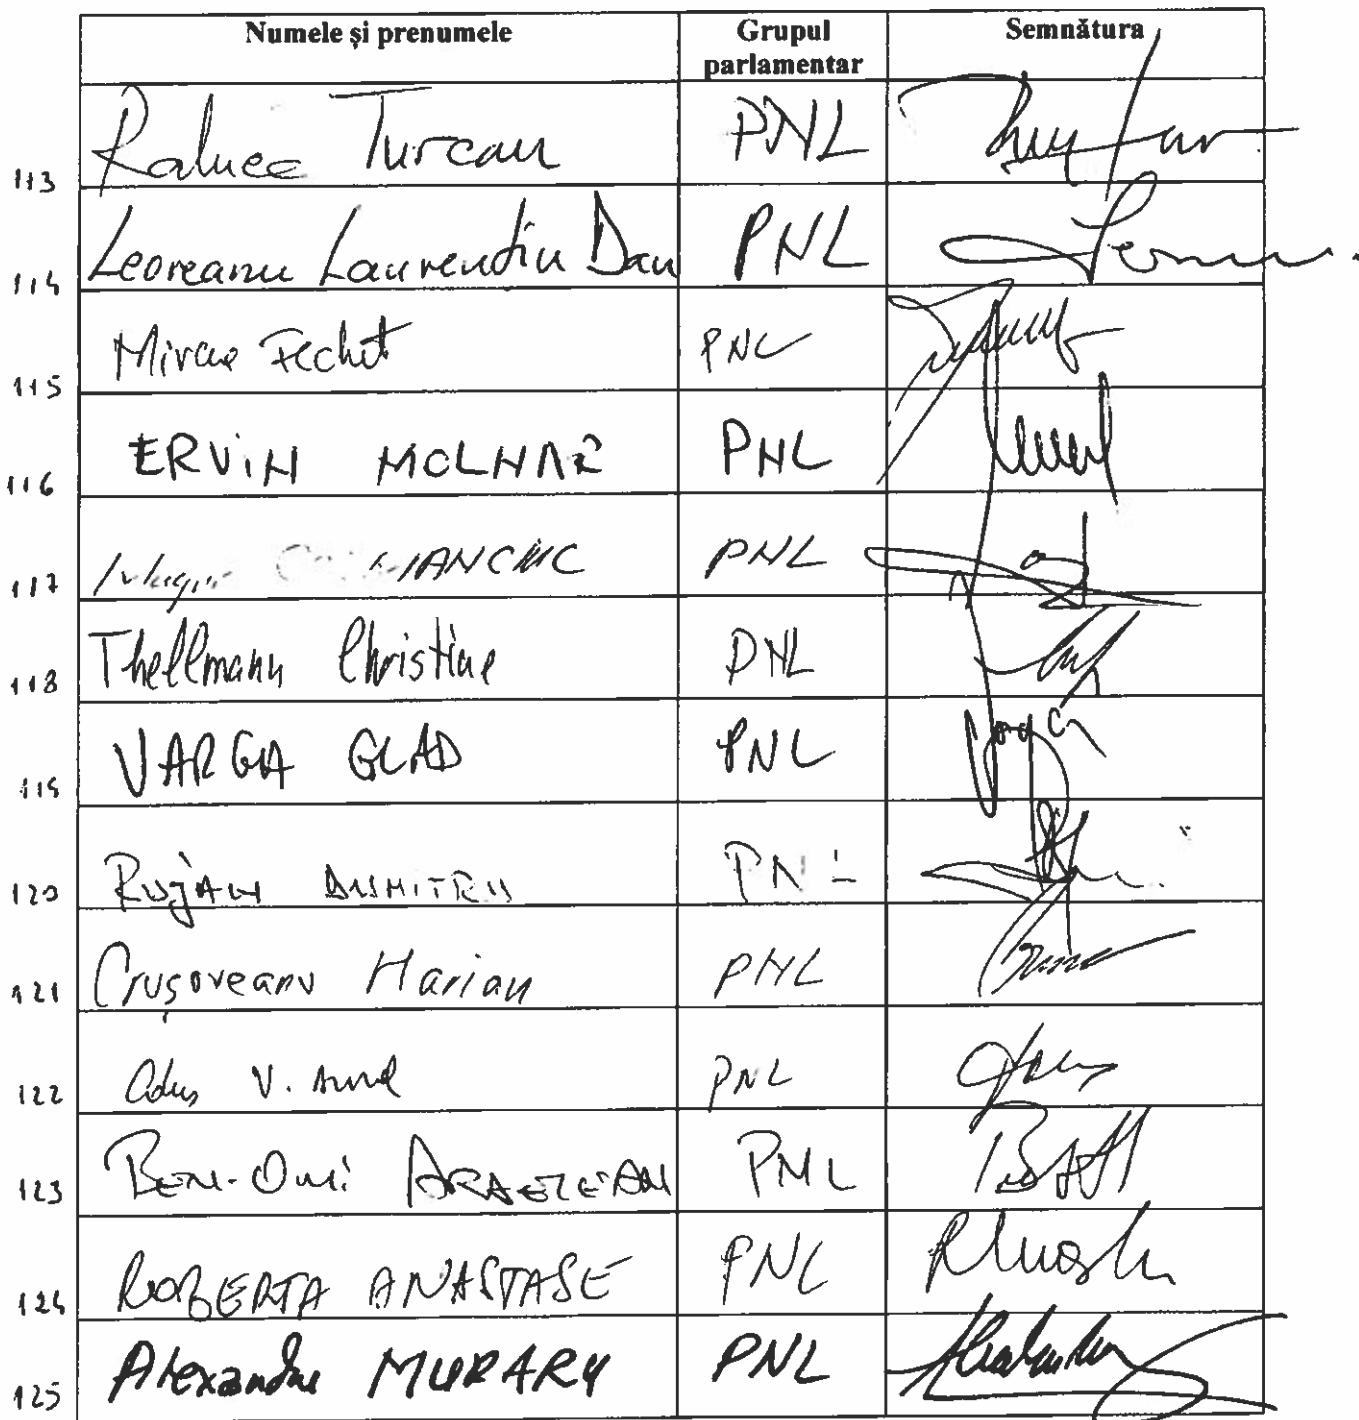 Numele și prenumele Grupul parlamentar Semnătura
113 Raluca Turcan PNL
114 Leoreanu Laurentiu Dan PNL
115 Mircea Fechet PNL
116 ERVIN MOLNAR PNL
117 PNL
118 Thellmann Christine PNL
119 VARGA GLAD PNL
120 RUJAN DUMITRU PNL
121 Crușoveanu Marian PNL
122 V. PNL
123 BEN-ONI ARDELEAN PNL
124 ROBERTA ANASTASE PNL
125 Alexandru MURARU PNL